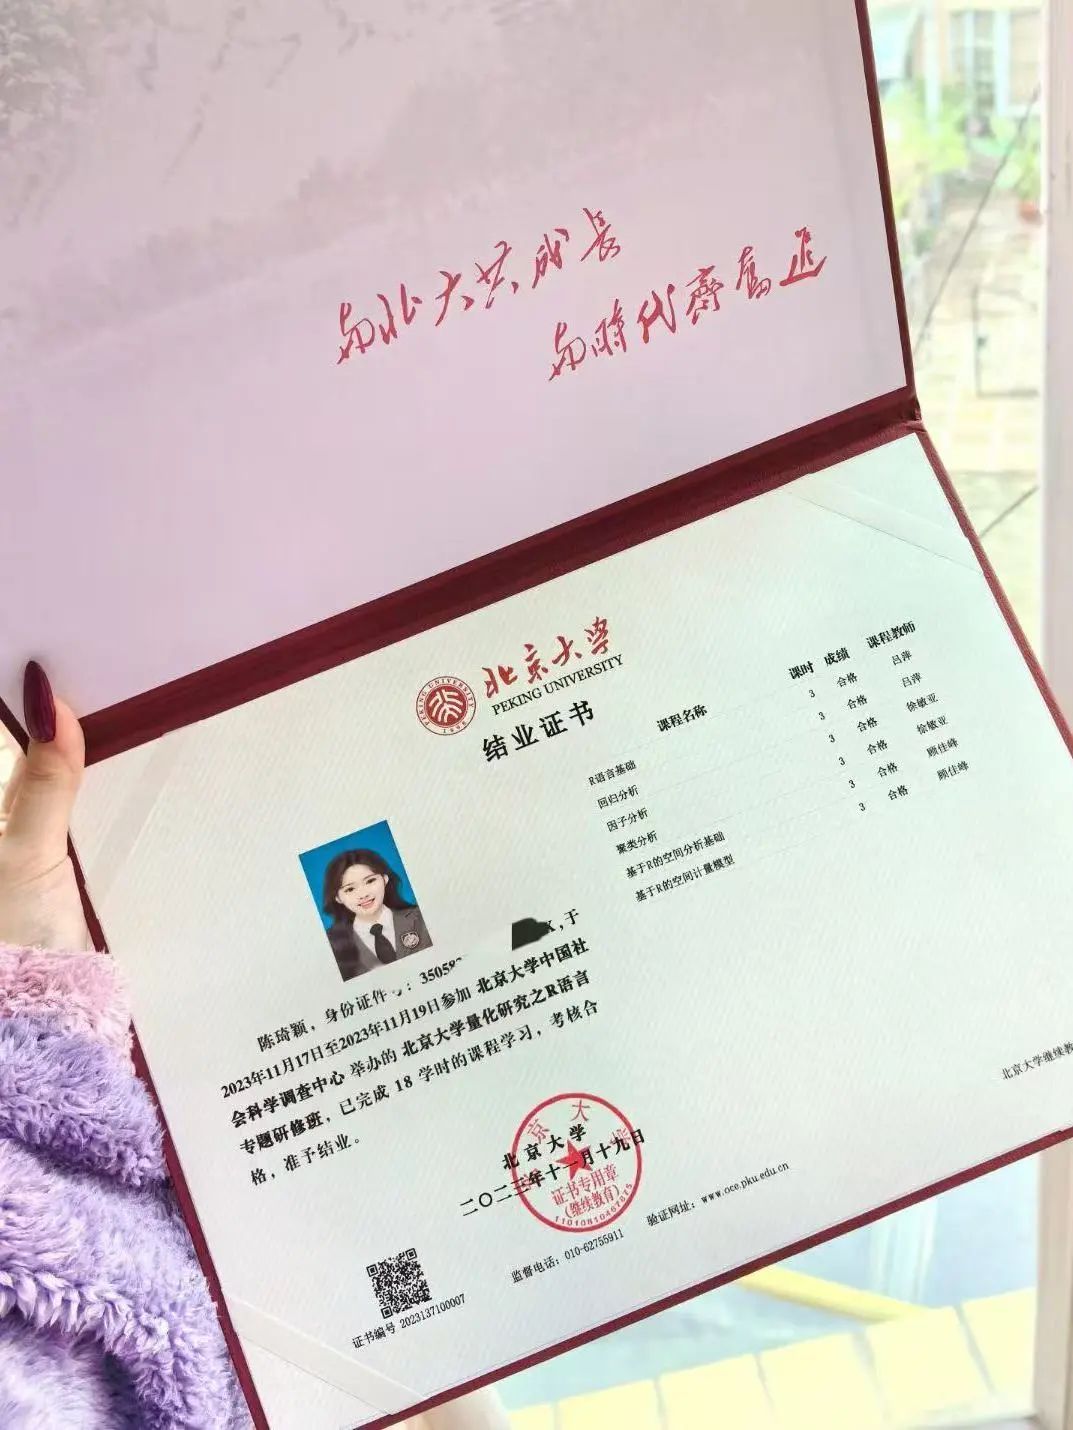 与北大共成长
与时代齐奋进
北京大学
PEKING UNIVERSITY
PEKING UNIVERSITY
1898
结业证书
陈琦颖，身份证件号：35058 X，于
2023年11月17日至2023年11月19日参加 北京大学中国社
会科学调查中心 举办的 北京大学量化研究之R语言
专题研修班，已完成 18 学时的课程学习，考核合
格，准予结业。
北京大学
二〇二三年十一月十九日
证书专用章
（继续教育）
证书编号 2023137100007
监督电话：010-62755911
验证网址：www.oce.pku.edu.cn
课程名称 课时 成绩 课程教师
R语言基础 3 合格 吕萍
回归分析 3 合格 吕萍
因子分析 3 合格 徐敏亚
聚类分析 3 合格 徐敏亚
基于R的空间分析基础 3 合格 顾佳峰
基于R的空间计量模型 3 合格 顾佳峰
北京大学继续教